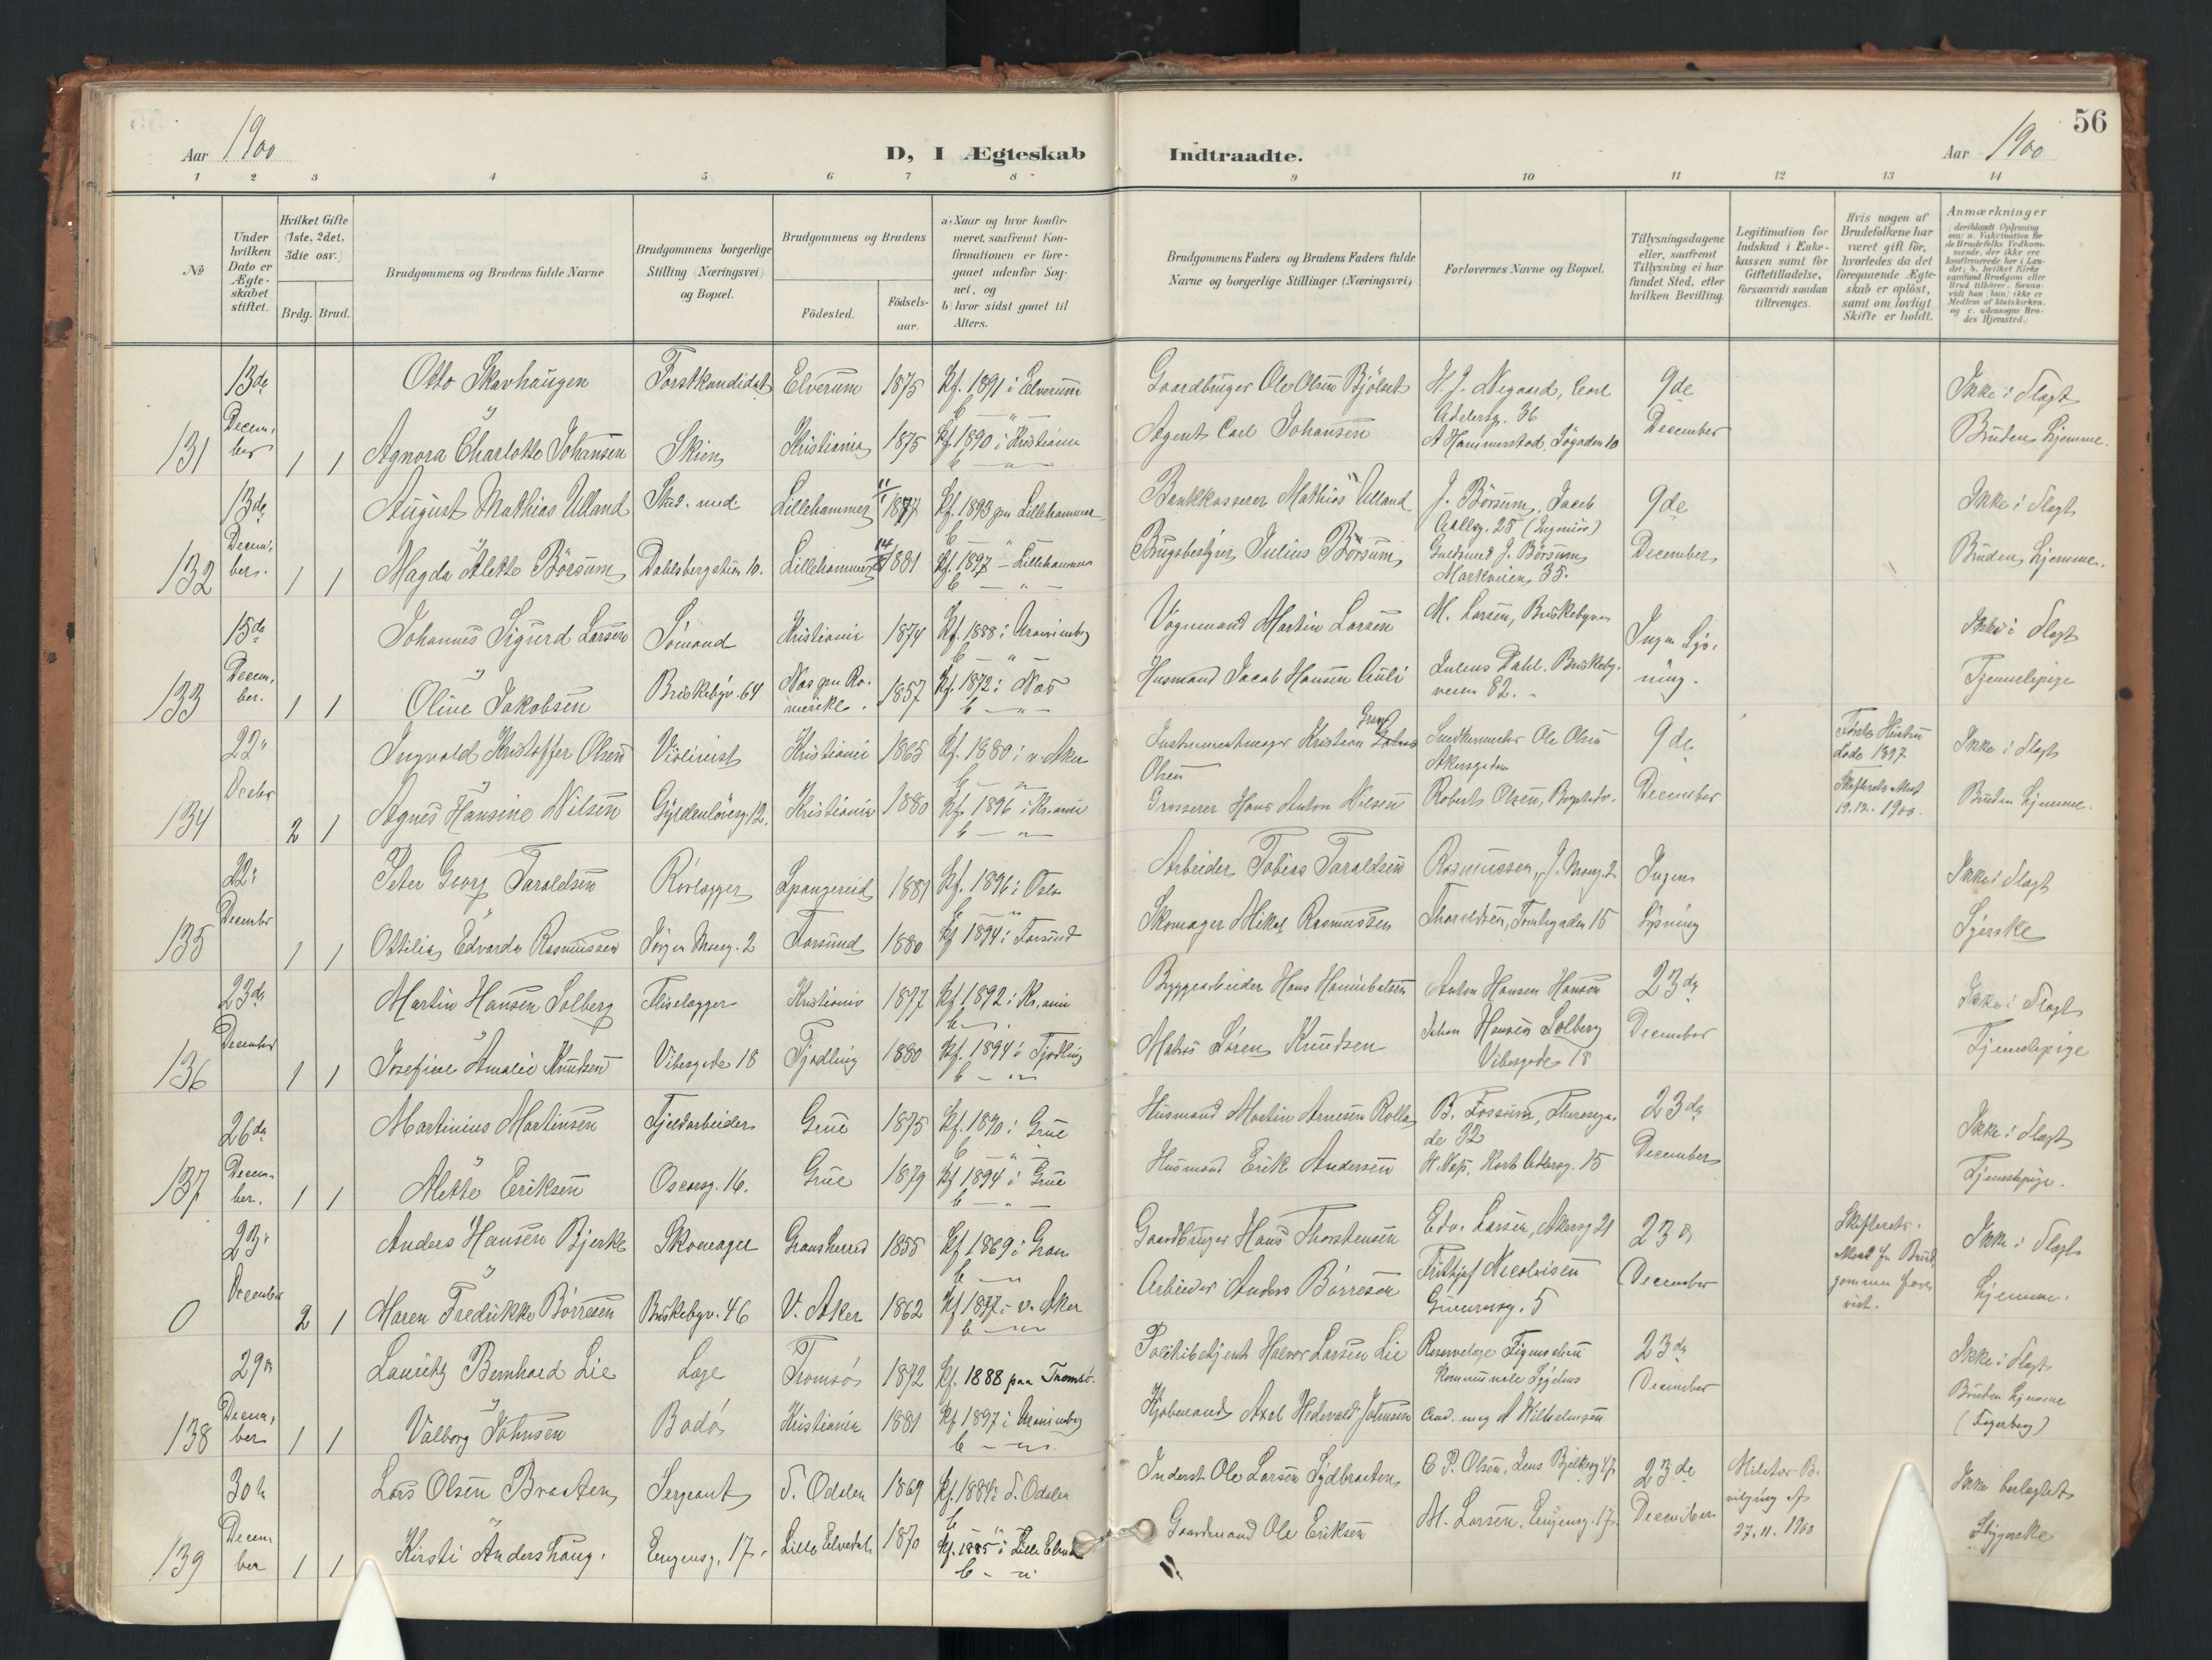 56
Aar 1900
D, I Ægteskab
Indtraadte.
Aar 1900
1 2 3 4 5 6 7 8 9 10 11 12 13 14
No
Under hvilken Dato er Ægteskabet stiftet.
Hvilket Gifte (1ste, 2det, 3die osv.)
Brdg. Brud.
Brudgommens og Brudens fulde Navne
Brudgommens borgerlige Stilling (Næringsvei) og Bopæl.
Brudgommens og Brudens
Födested.
Födsels-aar.
a) Naar og hvor konfirmeret, saafremt Konfirmationen er foregaaet udenfor Sognet, og
b) hvor sidst gaaet til Alters.
Brudgommens Faders og Brudens Faders fulde Navne og borgerlige Stillinger (Næringsvei)
Forlovernes Navne og Bopæl.
Tillysningsdagene eller, saafremt Tillysning ei har fundet Sted, efter hvilken Bevilling.
Legitimation for Indskud i Enkekassen samt for Giftetilladelse, forsaavidt saadan tiltrænges.
Hvis nogen af Brudefolkene har været gift för, hvorledes da det foregaaende Ægteskab er oplöst, samt om lovligt Skifte er holdt.
Anmærkninger
131 13de Decem, ber 1 1
Otto Skavhaugen Forstkandidat Elverum 1875 Kf. 1891 i Elverum
Agnora Charlotte Johansen Skien Kristiania 1875 Kf. 1890 i Kristiania
Gaardbruger Ole Olsen Bjölset H. J. Negaard, Carl Adlersg. 36 9de Ikke i Slægt
Agent Carl Johansen A Hammerstad, Sögaden 10 December Brudens Hjemme.
132 13de Decem, ber. 1 1
August Mathias Ulland Stud. med. Lillehammer 11/1 1877 Kf. 1893 paa Lillehammer
Magda Alette Börsum Dahlsbergstien 10. Lillehammer 14 1881 Kf. 1897 – Lillehammer
Bankkasserer Mathias Ulland J. Börsum, Jacob Aallsg. 25 (Ingeniör) 9de Ikke i Slægt
Brugsbestyrer Julius Börsum Guldsmed J. Börsum Markveien 35. December Brudens Hjemme.
133 15de Decem, ber. 1 1
Johannes Sigurd Larsen Sömand Kristiania 1874 Kf. 1888 i Uranienborg
Oline Jakobsen Briskebyv. 64 Nes paa Romerike. 1857 Kf. 1872 i Nes
Vognmand Martin Larsen M. Larsen, Briskebyveien Ingen Lys, Ikke i Slægt
Husmand Jacob Hansen Auli Julius Dahl. Briskebyveien 82. ning. Tjenestepige
134 22" Decbr 2 1
Ingvald Kristoffer Olsen Violinist Kristiania 1865 Kf. 1880 i v. Aker
Agnes Hansine Nilsen Gyldenlövesg. 12. Kristiania 1880 Kf. 1896 i Kr.ania
Instrumentmager Kristian Olsen Snedkermester Ole Olsen Akersgaden 9de Förste Hustru döde 1897 Ikke i Slægt
Grosserer Hans Anton Nilsen Robert Olsen, December Skifterets Attest 19.12.1900. Bruden Hjemme.
135 22" December 1 1
Peter Georg Taraldsen Rörlægger Spangereid 1881 Kf. 1896 i Oslo
Ottilia Edvarda Rasmussen Jörgen Moesg. 2 Farsund 1880 Kf 1894 i Farsund
Arbeider Tobias Taraldsen Rasmussen, J. Moesg. 2 Ingen Ikke i Slægt
Skomager Mikal Rasmussen Tharaldsen, Tomtegaden 15 Lysning Syerske
136 23de December 1 1
Martin Hansen Solberg Fliselægger Kristiania 1877 Kf 1892 i Kr.ania
Josefine Amalie Knudsen Vibesgade 18 Tjödling 1880 Kf. 1894 i Tjödling
Byggearbeider Hans Hannibalsen Anton Hansen Hansen 23de Ikke i Slægt
Matros Sören Knudsen Johan Hansen Solberg Vibesgade 18 December Tjenestepige
137 26de Decem- ber. 1 1
Martinius Martinsen Fjeldarbeider Grue 1875 Kf. 1890 i Grue
Alette Eriksen Oscarsg. 16. Grue 1879 Kf 1894 i Grue
Husmand Martin Arnesen Rolla B. Fossum, Theresegade 32 23de Ikke i Slægt
Husmand Erik Andersen December Tjenestepige.
0 23" December 2 1
Anders Hansen Bjerke Skomager Gransherred 1855 Kf 1869 i Gran
Maren Fredrikke Börresen Briskebyv. 46 V. Aker 1862 Kf 1877 i v. Aker
Gaardbruger Hans Thorstensen Edv. Larsen, Akersg 21 23de Skifterets. Attest for Brudgommen forevist. Ikke i Slægt
Arbeider Anders Börresen Frithjof Nicolaisen 5 December Hjemme.
138 29de Decem, ber 1 1
Lauritz Bernhard Lie Læge Tromsö 1872 Kf. 1888 paa Tromsö.
Valborg Johnsen Bodö Kristiania 1881 Kf 1897 i Uranienborg
Politibetjent Halvor Larsen Lie Reservelæge Kommunale Sygehus 23de Ikke i Slægt
Kjöbmand Axel Johnsen Cand. mag A Wilhelmsen December Bruden Hjemme (Fagerborg)
139 30te Decem ber 1 1
Lars Olsen Braaten Sergeant S. Odalen 1869 Kf. 1884 i S. Odalen
Kirsti Andershaug. Eugensg. 17. Lille Elvedal 1870 Kf. 1885 i Lille Elvedal
Inderst Ole Larsen Sydbraaten C P. Olsen, Jens Bjelkesg 47. 23de Militær Bevilging af 27.11.1900 Ikke beslægtet
Gaardmand Ole Eriksen M. Larsen, Eugensg. 17. December Sygerske